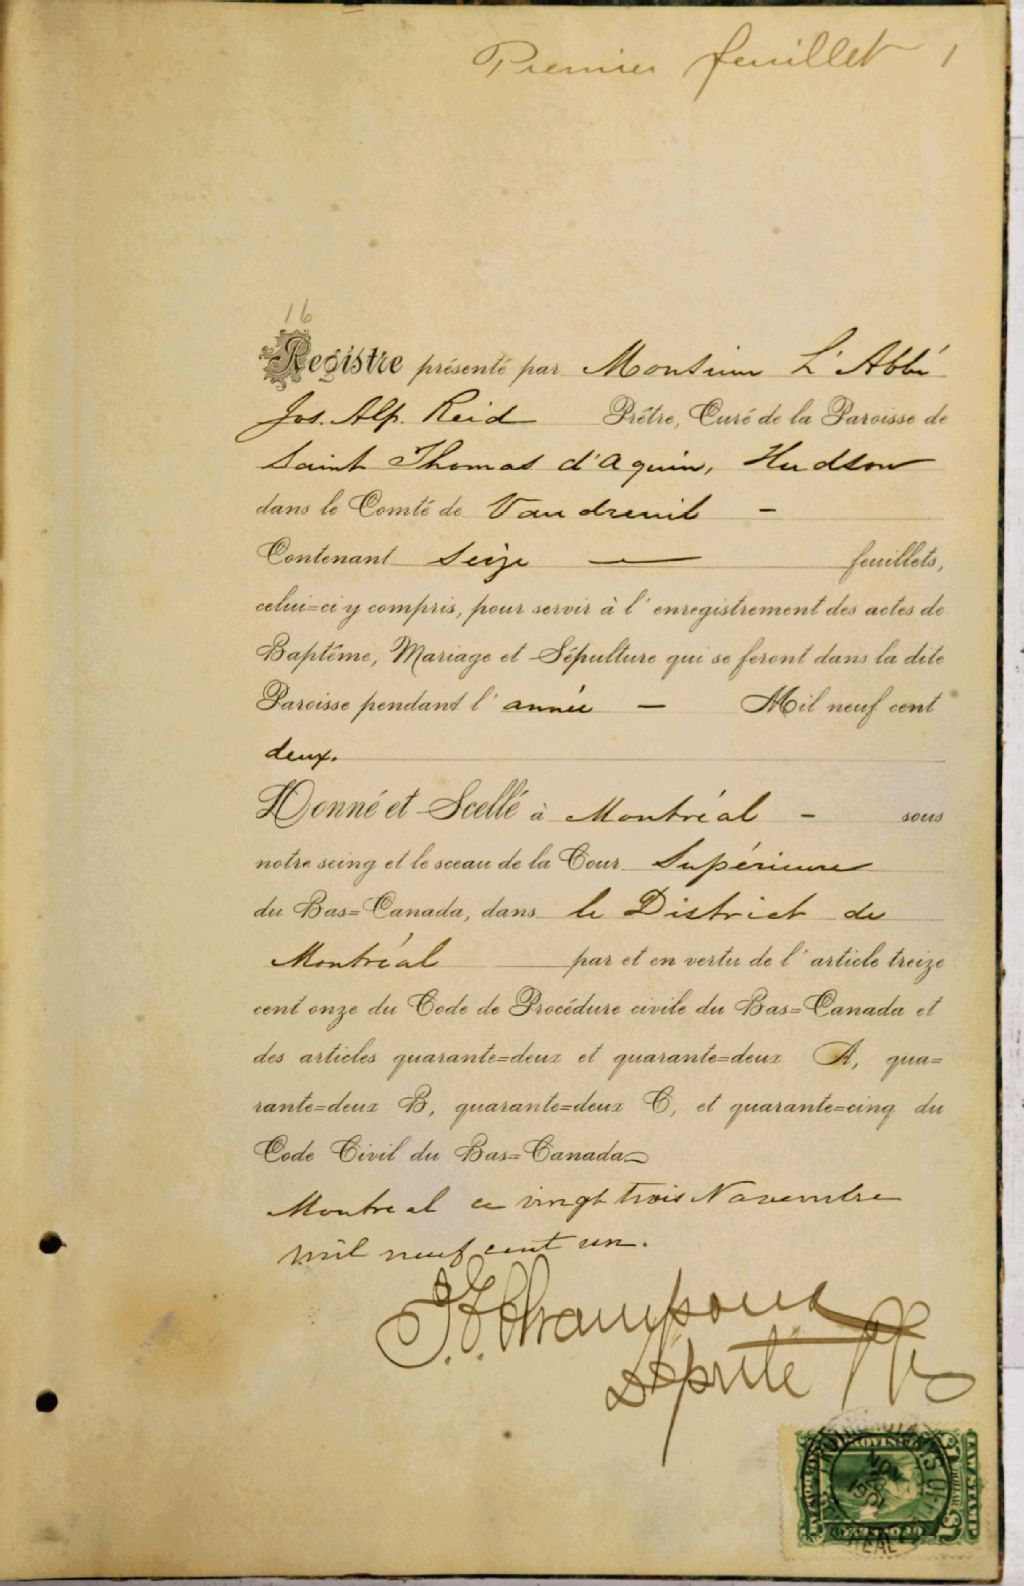 Premier feuillet 1
16
Registre présenté par Monsieur L'Abbé
Jos. Alp. Reid Prêtre, Curé de la Paroisse de
Saint Thomas d'Aquin, Hudson
dans le Comté de Vaudreuil -
Contenant Seize — feuillets,
celui=ci y compris, pour servir à l'enregistrement des actes de
Baptême, Mariage et Sépulture qui se feront dans la dite
Paroisse pendant l'année — Mil neuf cent
deux.
Donné et Scellé à Montréal - sous
notre seing et le sceau de la Cour Supérieure
du Bas=Canada, dans le District de
Montréal par et en vertu de l'article treize
cent onze du Code de Procédure civile du Bas=Canada et
des articles quarante=deux et quarante=deux A, qua=
rante=deux B, quarante=deux C, et quarante=cinq du
Code Civil du Bas=Canada
Montreal ce vingt trois Novembre
mil neuf cent un.
Député
NOV
1901